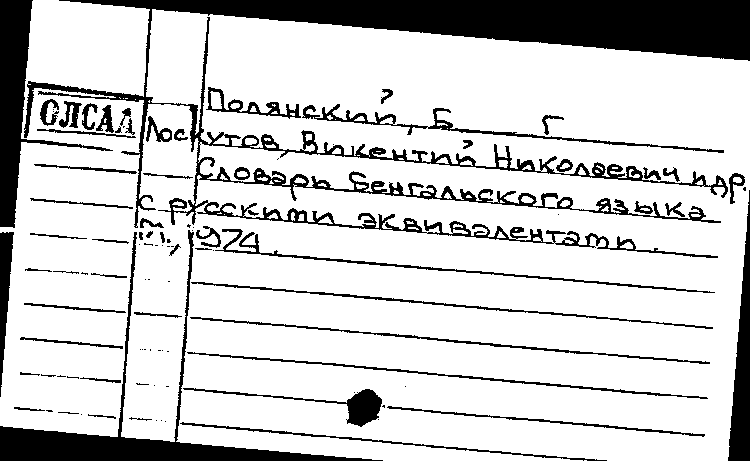 Полянский, Б Г
ОЛСАА
Лоскутов, Викентий Николаевич и др.
Словарь бенгальского языка
с русскими эквивалентами.
М., 1974.